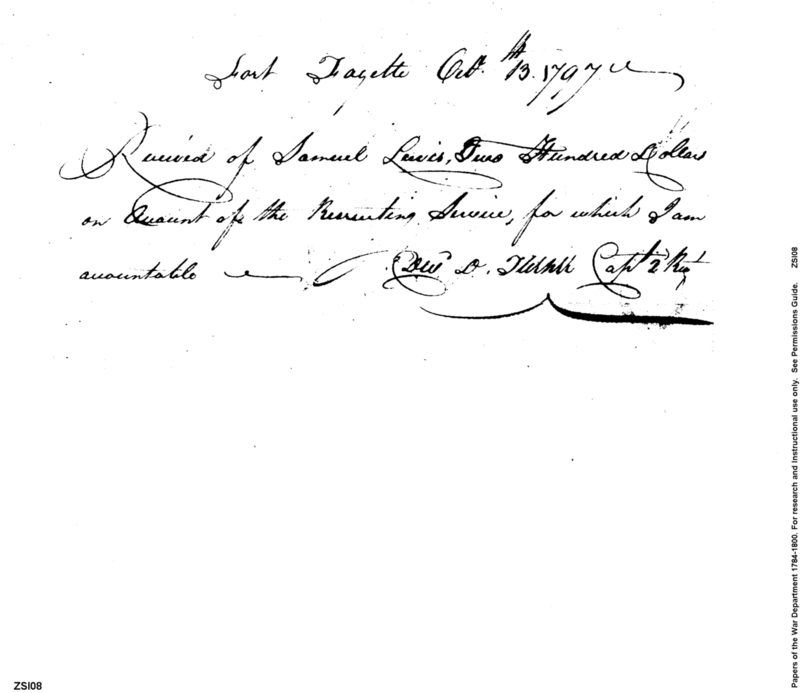 Fort Fayette Octr. 13th. 1797
Received of Samuel Lewis, Two Hundred Dollars
on Account of the Recruiting Service, for which I am
accountable
Edwd. D. Turner Capt. 2 Regt
ZSI08
Papers of the War Department 1784-1800. For research and instructional use only. See Permissions Guide. ZSI08